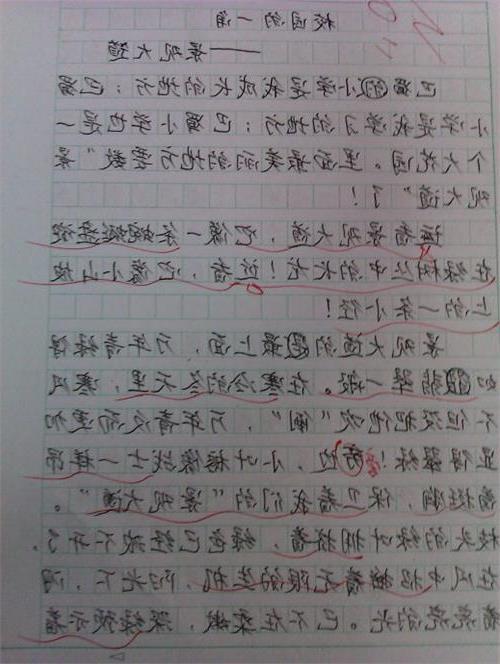 校园的一角
——景观大道
巴蜀小学是我成长的地方；巴蜀
小学是我学习的地方；巴蜀小学也是一
个大花园。里面最美的地方要数“景
观大道”了！
远看景观大道，它像一条蜿蜒盘旋
在绿树丛中的大龙！近看，它像小山坡
上的一条小径！
景观大道的最上面，万年青绿得
如翡翠一般。在寒冷的冬天里，寒风
不但没把他吹“倒”，万年青反而更加
显得翠绿！旁边，小叶榕像战士一样昂
首挺胸，保卫着我们的“景观大道”。
枝头的绿叶拥挤着，绿色已经放不开了。
在风中招摇着无限的生机，阳光下，闪
着亮亮的光。已不在柔嫩，深绿预示着